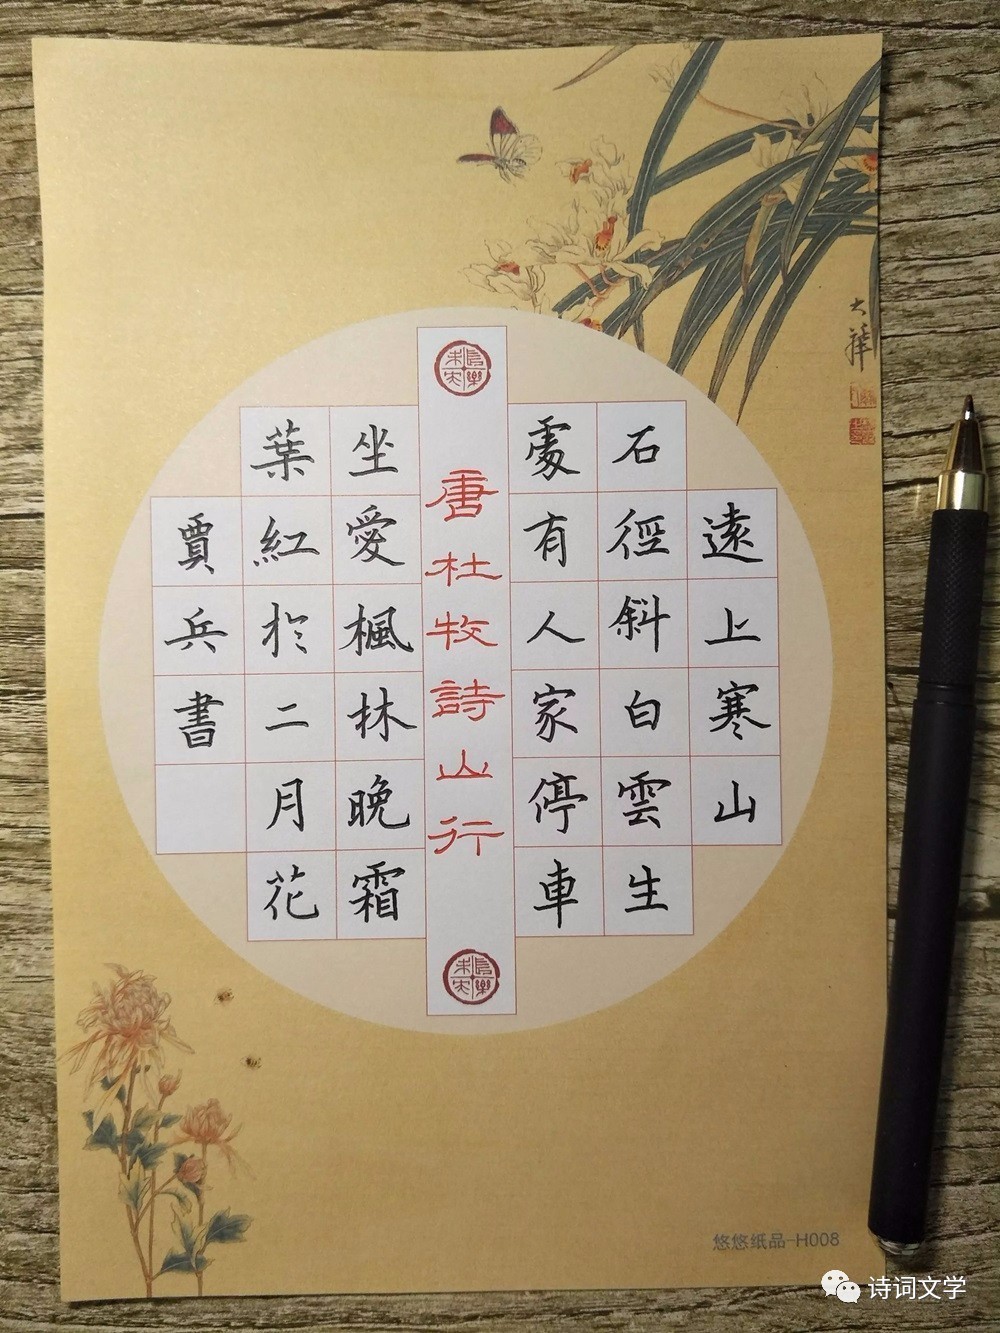 遠上寒山
石徑斜白雲生
處有人家停車
唐杜牧詩山行
坐愛楓林晚霜
葉紅於二月花
賈兵書
長樂未央
長樂未央
悠悠纸品-H008
诗词文学